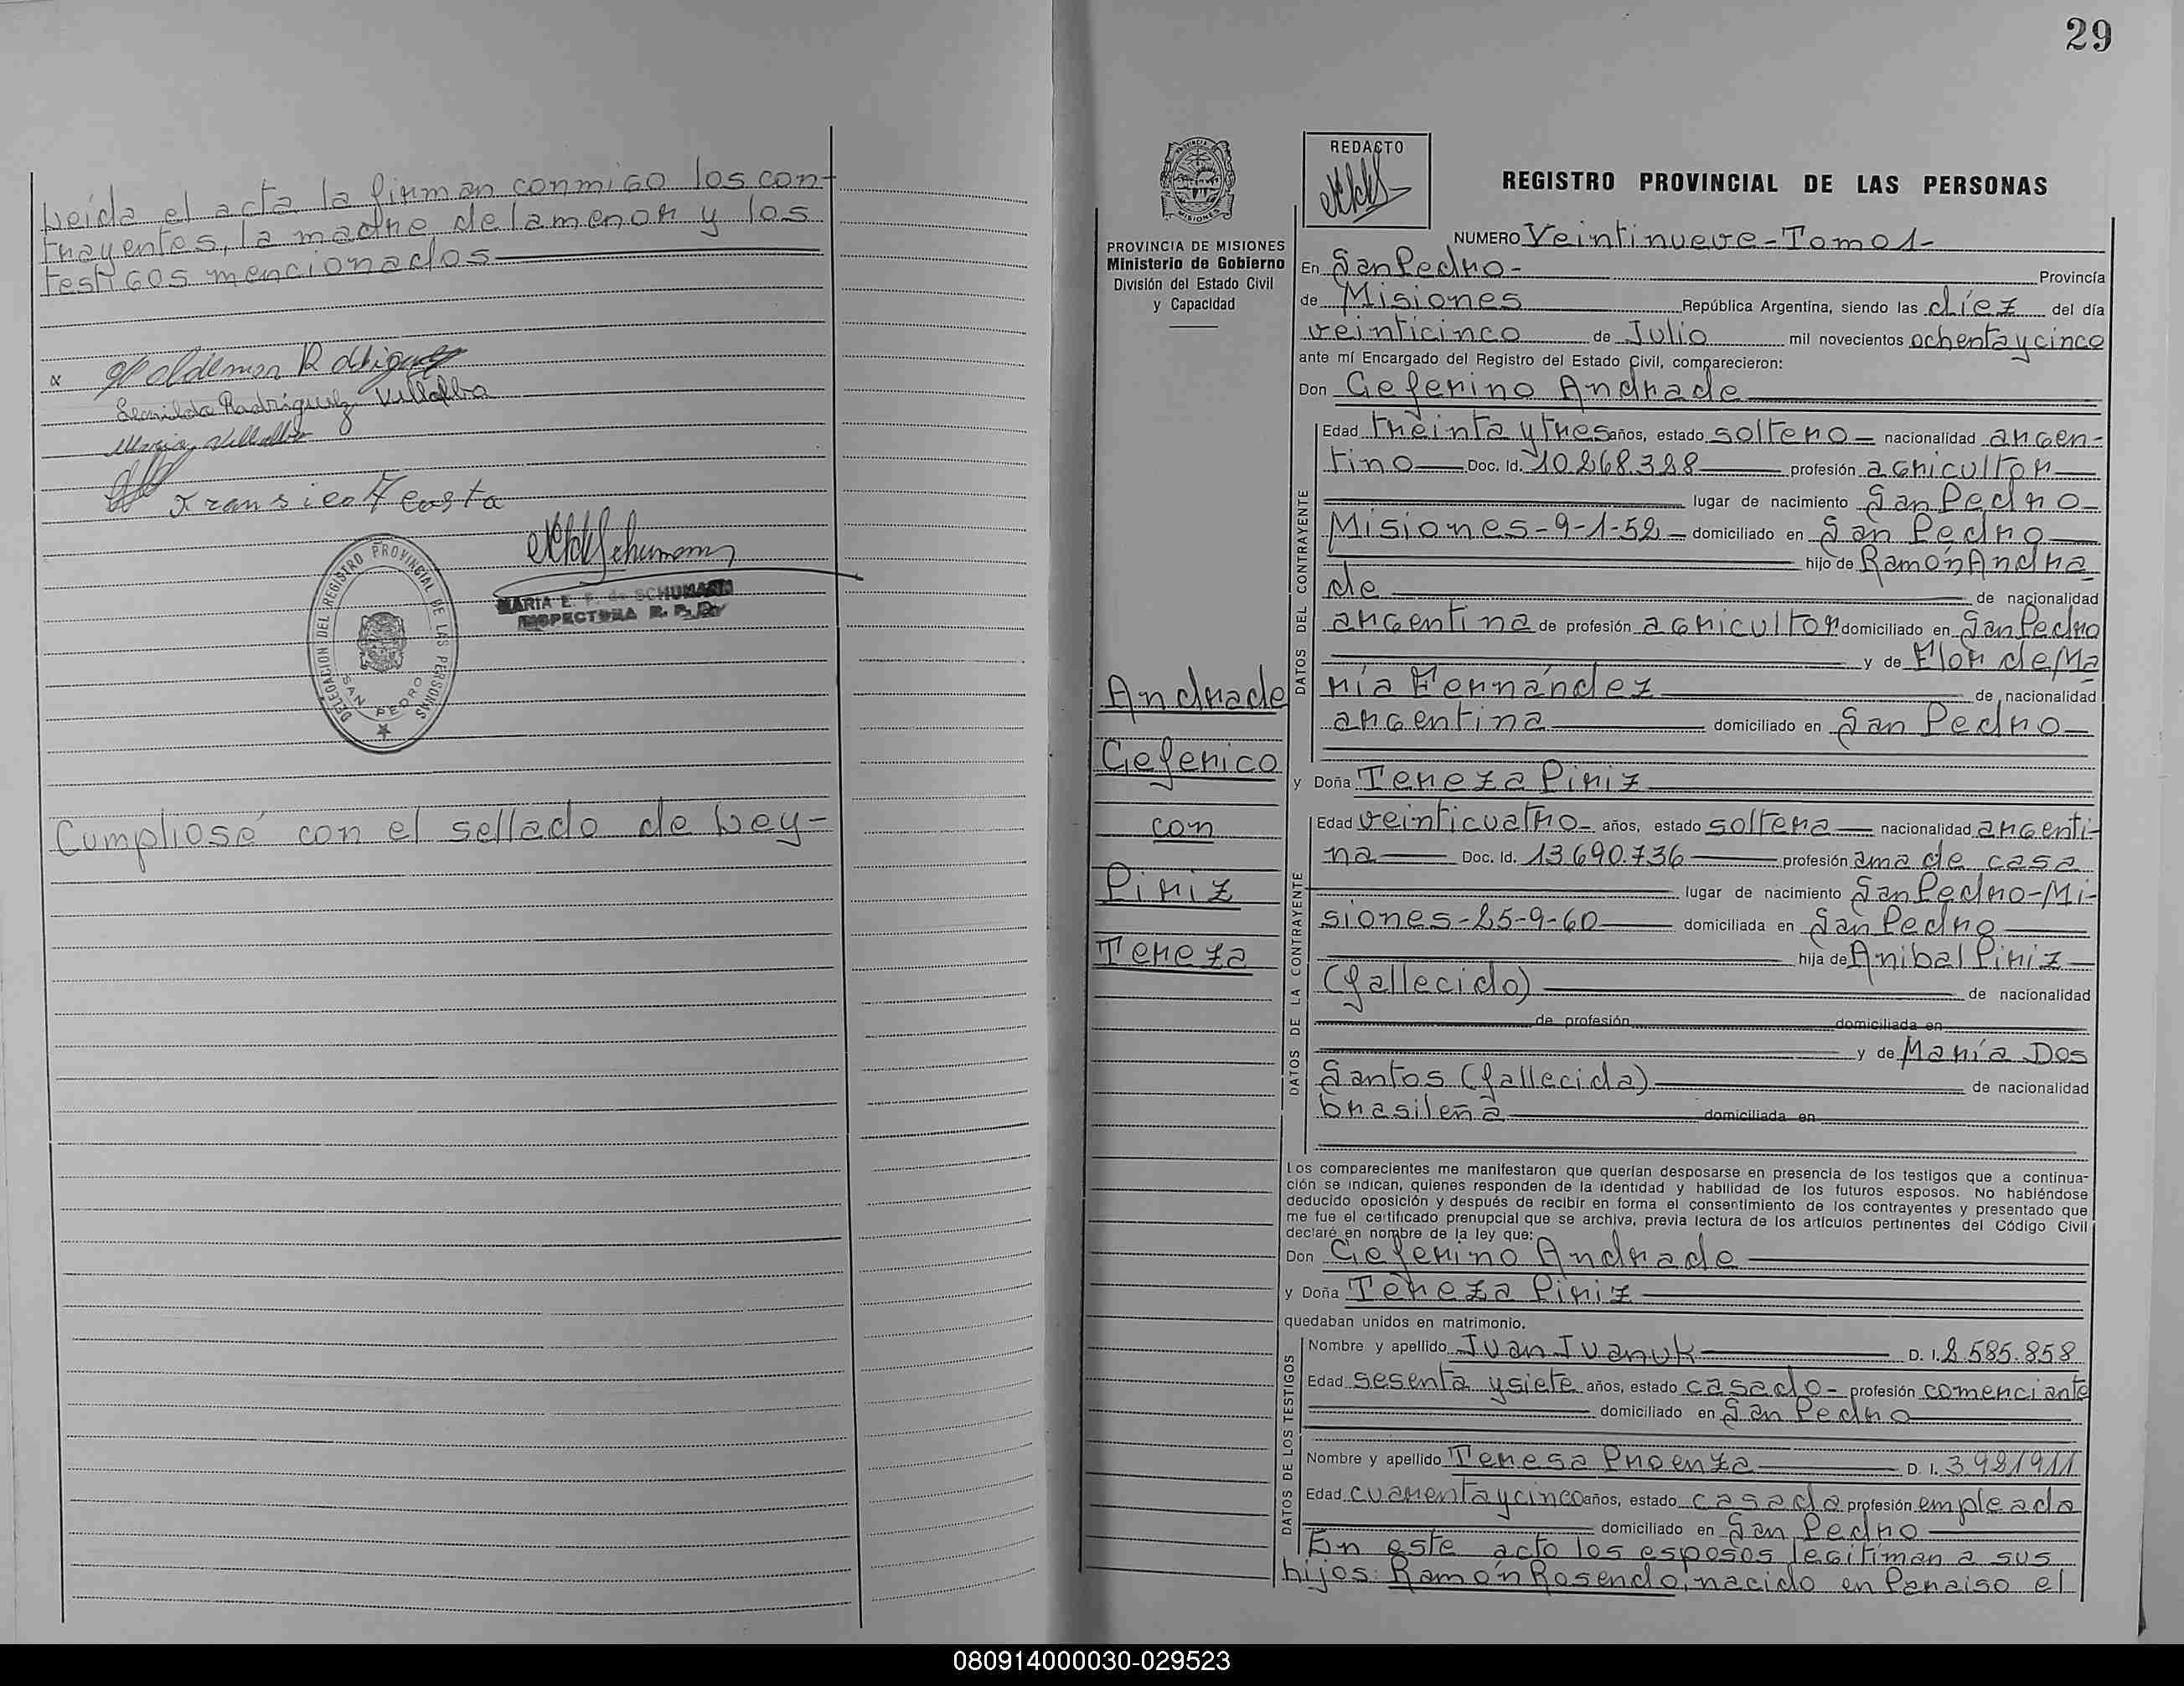 Leida el acta la firman conmigo los con-
trayentes, la madre de la menor y los
testigos mencionados
x Valdemar Rodriguez
Rodriguez Villalba
Maria Villalba
DELEGACION DEL REGISTRO PROVINCIAL DE LAS PERSONAS
SAN PEDRO
MARIA E. F. de SCHUMANN
INSPECTORA
Cumpliose con el sellado de Ley-
29
MISIONES
PROVINCIA DE MISIONES
Ministerio de Gobierno
División del Estado Civil
y Capacidad
Andrade
Ceferico
con
Piriz
Tereza
REDACTO
REGISTRO PROVINCIAL DE LAS PERSONAS
NUMERO Veintinueve-Tomo1-
En San Pedro- Provincia
de Misiones República Argentina, siendo las diez del día
veinticinco de Julio mil novecientos ochenta y cinco
ante mí Encargado del Registro del Estado Civil, comparecieron:
Don Ceferino Andrade
DATOS DEL CONTRAYENTE
Edad treinta y tres años, estado soltero- nacionalidad argen-
tino Doc. Id. 10.268.328 profesión agricultor
lugar de nacimiento San Pedro-
Misiones-9-1-52- domiciliado en San Pedro
hijo de Ramón Andra
de de nacionalidad
argentina de profesión agricultor domiciliado en San Pedro
y de Flor de Ma
ría Fernández de nacionalidad
argentina domiciliado en San Pedro-
y Doña Tereza Piriz
DATOS DE LA CONTRAYENTE
Edad veinticuatro- años, estado soltera nacionalidad argenti-
na Doc. Id. 13.690.736 profesión ama de casa
lugar de nacimiento San Pedro-Mi-
siones-25-9-60 domiciliada en San Pedro
hija de Anibal Piriz
(fallecido) de nacionalidad
de profesión domiciliada en
y de María Dos
Santos (fallecida) de nacionalidad
brasileña domiciliada en
Los comparecientes me manifestaron que querían desposarse en presencia de los testigos que a continua-
ción se indican, quienes responden de la identidad y habilidad de los futuros esposos. No habiéndose
deducido oposición y después de recibir en forma el consentimiento de los contrayentes y presentado que
me fue el certificado prenupcial que se archiva, previa lectura de los artículos pertinentes del Código Civil
declaré en nombre de la ley que:
Don Ceferino Andrade
y Doña Tereza Piriz
quedaban unidos en matrimonio.
DATOS DE LOS TESTIGOS
Nombre y apellido Juan Ivanuk D. I. 2.585.858
Edad sesenta y siete años, estado casado- profesión comerciante
domiciliado en San Pedro
Nombre y apellido Teresa Proenza D. I. 3.921911
Edad cuarenta y cinco años, estado casada profesión empleada
domiciliado en San Pedro
En este acto los esposos legitiman a sus
hijos: Ramón Rosendo, nacido en Paraiso el
080914000030-029523